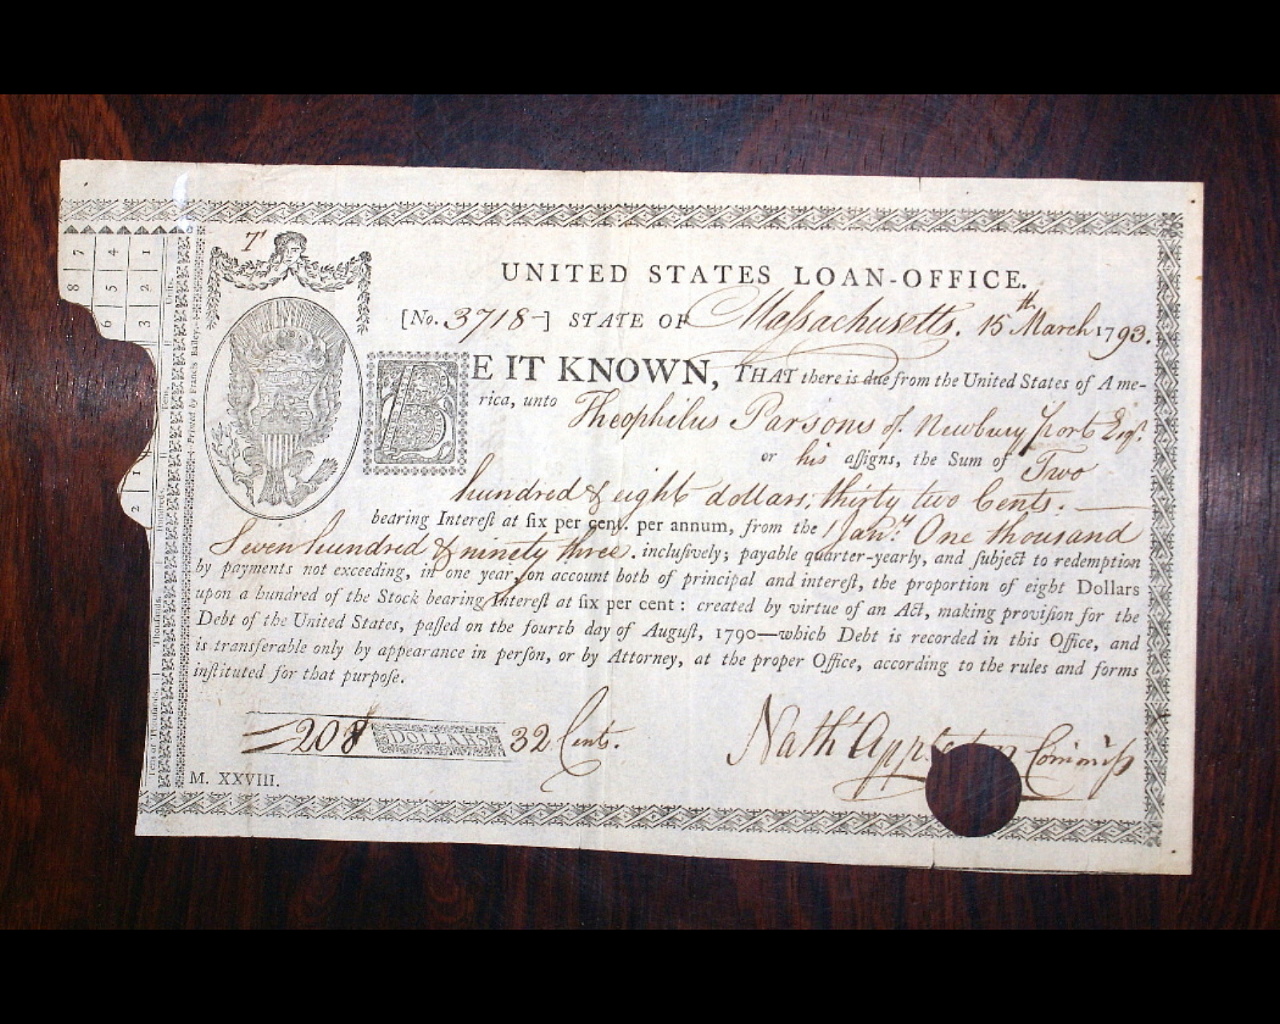 7
UNITED STATES LOAN-OFFICE.
[No. 3718-] STATE OF Maſsachusetts. 15th March 1793.
BE IT KNOWN, THAT there is due from the United States of Ame-
rica, unto Theophilus Parsons of Newbury port Esqr.
or his aſſigns, the Sum of Two
hundred & eight dollars, thirty two Cents. —
bearing Intereſt at ſix per cent. per annum, from the 1 Jany. One thousand
Seven hundred & ninety three. incluſively; payable quarter-yearly, and ſubject to redemption
by payments not exceeding, in one year, on account both of principal and intereſt, the proportion of eight Dollars
upon a hundred of the Stock bearing Intereſt at ſix per cent: created by virtue of an Act, making proviſion for the
Debt of the United States, paſſed on the fourth day of Auguſt, 1790—which Debt is recorded in this Office, and
is transferable only by appearance in perſon, or by Attorney, at the proper Office, according to the rules and forms
inſtituted for that purpoſe.
208 DOLLARS 32 Cents.
Nathl Appleton Commiſs
M. XXVIII.
Printed by Francis Bailey.
Units.
Tens.
Hundreds.
Thouſands.
Tens of Thouſands.
7 4 1
8 5 2
6 3
1
2